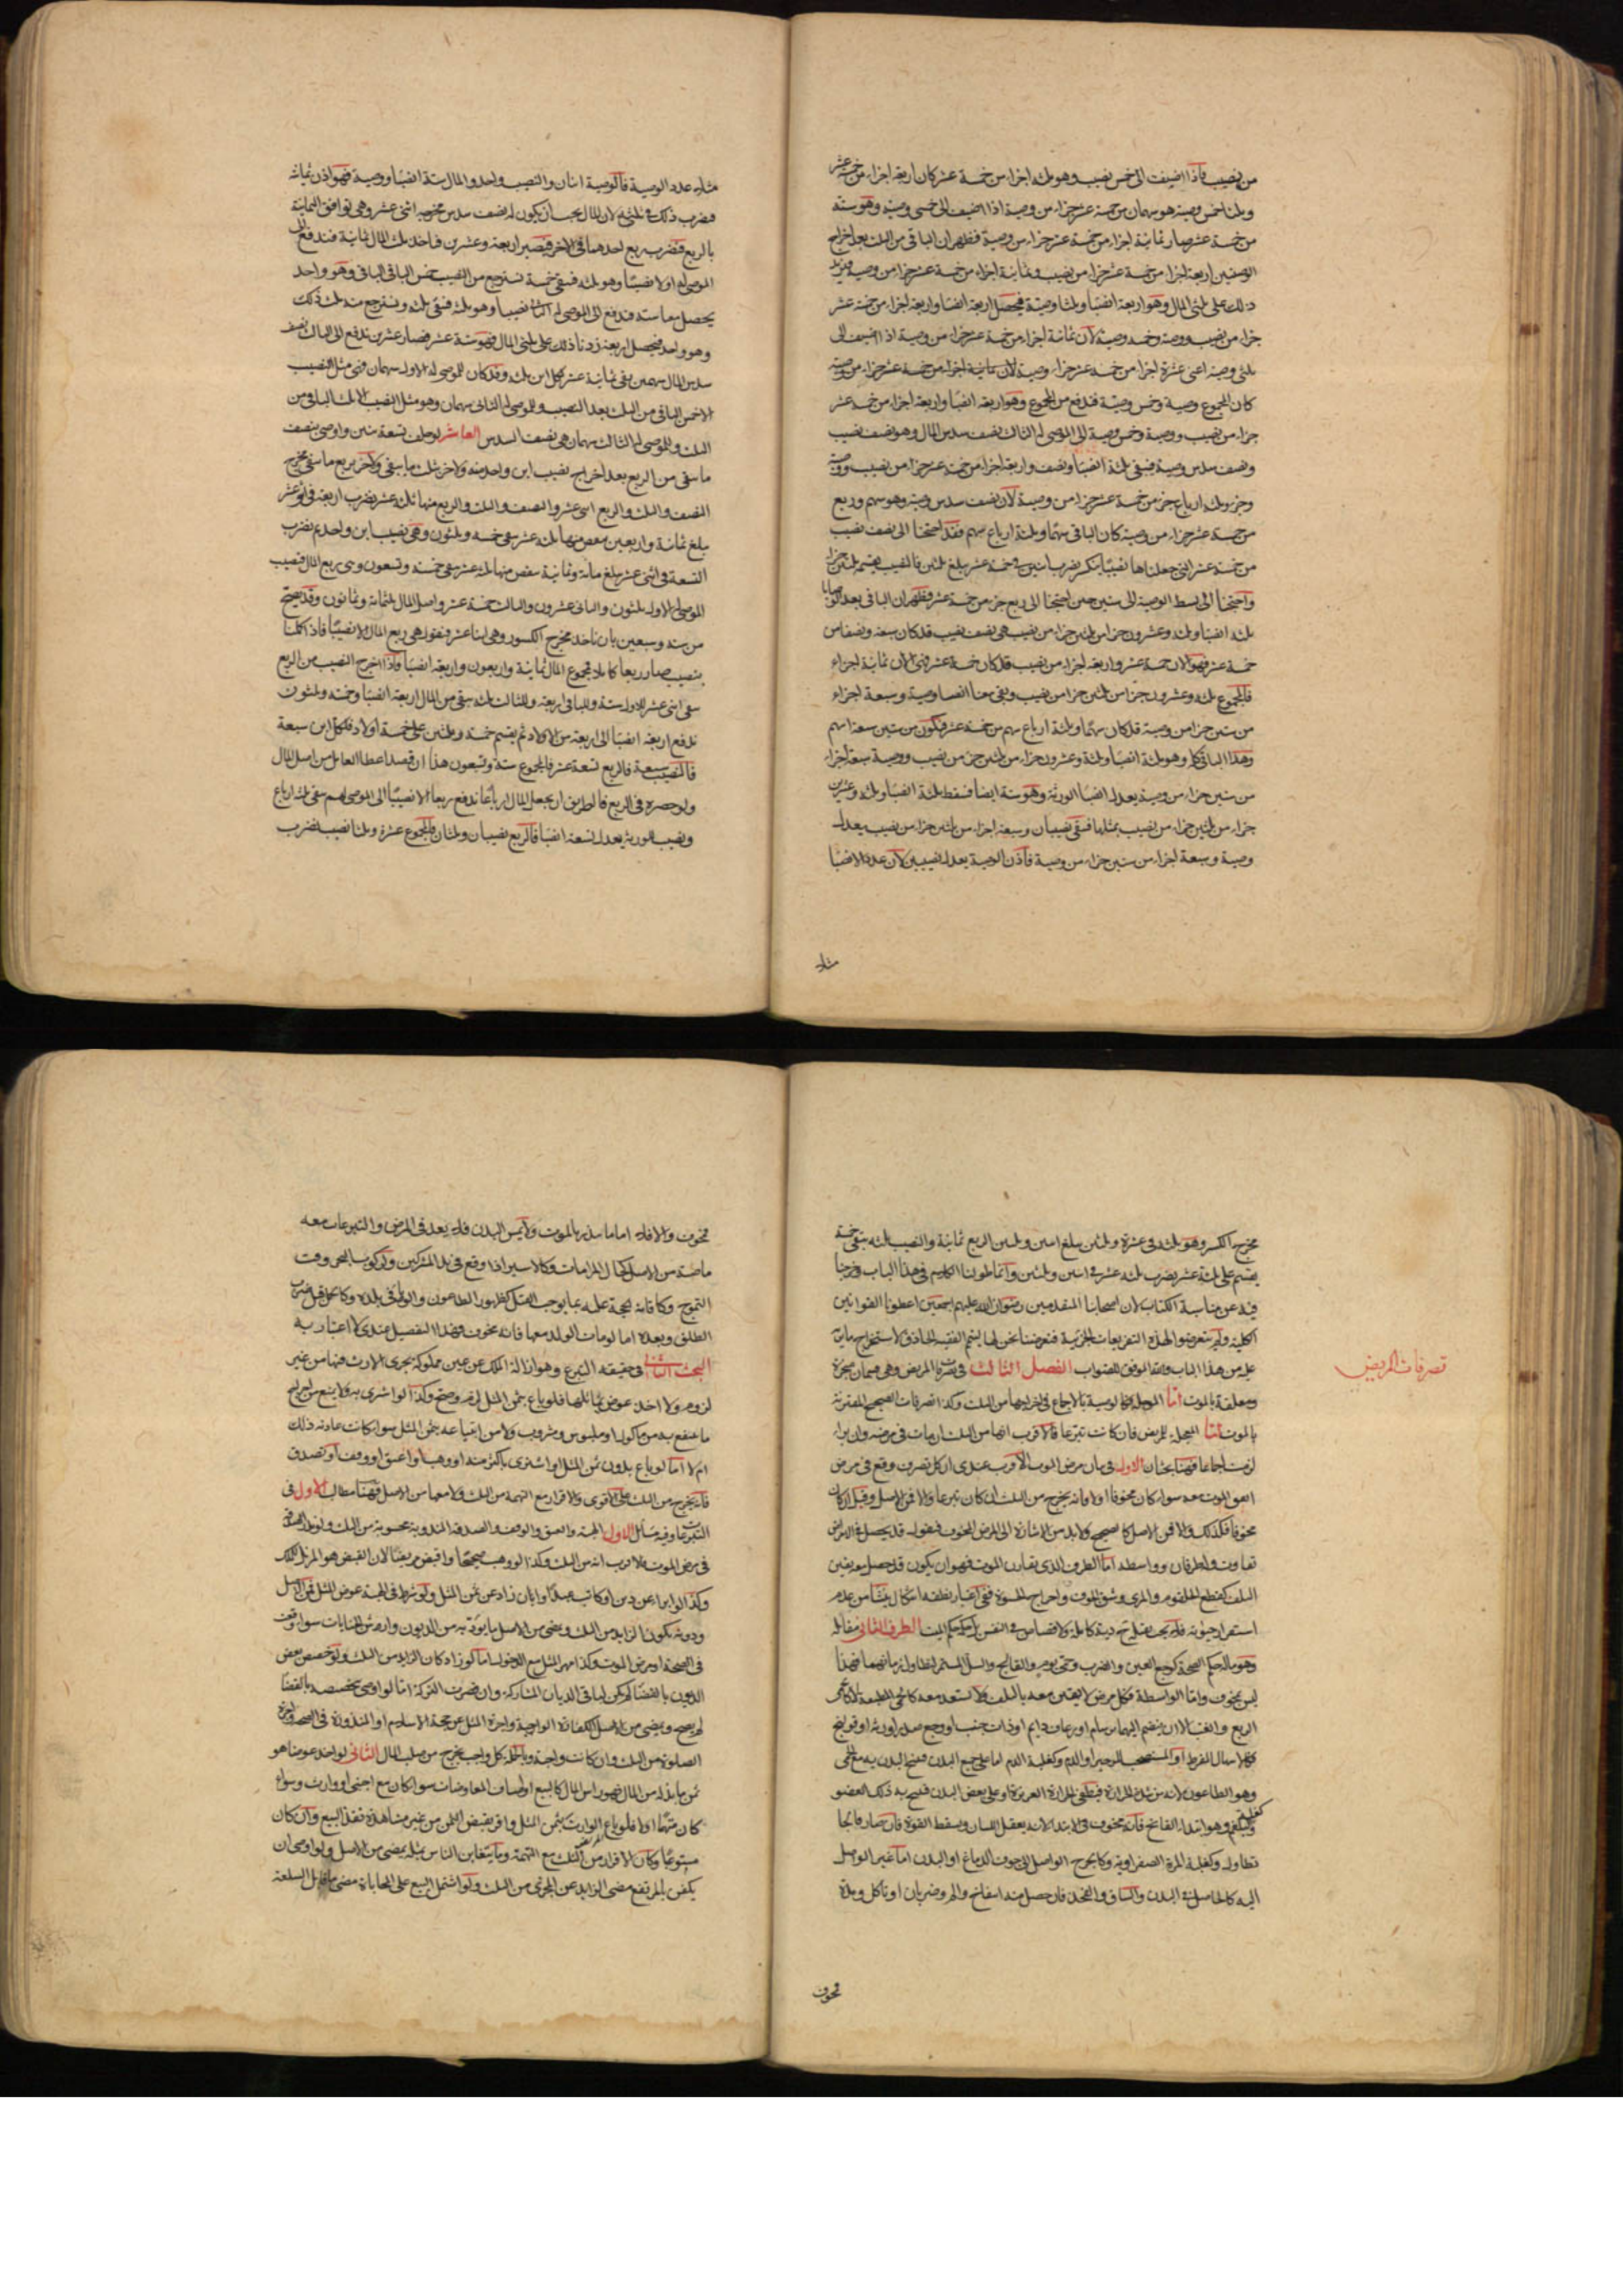 من نصيب فاذا اضيفت الى خمس نصيب وهو ثلثه اجزاء من خمسة عشر كان اربعة اجزاء من خمسة عشر
وثلثا خمس وصية هو سهمان من خمسة عشر جزاء من وصية اذا اضيف الى خمسى وصية وهو ستة
من خمسة عشر صار ثمانية اجزاء من خمسة عشر جزاء من وصية فظهر ان الباقى من الثلث بعد اخراج
الوصيتين اربعة اجزاء من خمسة عشر جزاء من نصيب وثمانية اجزاء من خمسة عشر جزاء من وصية فنزيد
ذلك على ثلثى المال وهو اربعة انصبا وثلثا وصية فيحصل اربعة انصبا واربعة اجزاء من خمسة عشر
جزاء من نصيب ووصية وخمس وصية لان ثمانية اجزاء من خمسة عشر جزاء من وصية اذا اضيف الى
ثلثى وصية اعنى عشرة اجزاء من خمسة عشر جزاء
كان المجموع وصية وخمس وصية فندفع من المجموع وهو اربعة انصبا واربعة اجزاء من خمسة عشر
جزاء من نصيب ووصية وخمس وصية الى الموصى له الثالث نصف سدس المال وهو نصف نصيب
ونصف سدس وصية فيبقى ثلثة انصبا ونصف واربعة اجزاء من خمسة عشر جزاء من نصيب ووصية
وجزء وثلثه ارباع جزء من خمسة عشر جزاء من وصية لان نصف سدس وصية وهو سهم وربع
من خمسة عشر جزاء من وصية كان الباقى سهما وثلثة ارباع سهم فقد احتجنا الى نصف نصيب
من خمسة عشر التى جعلناها نصيبا فنكسر نضرب اثنين فى خمسة عشر يبلغ ثلثين فالنصيب يقسم ثلثين جزا
واحتجنا الى بسط الوصية الى ستين حين احتجنا الى ربع جزء من خمسة عشر فظهر ان الباقى بعد الوصايا
ثلثة انصبا وثلثة وعشرون جزا من ثلثين جزاء من نصيب هى نصف نصيب قد كان سبعة ونصفا من
خمسة عشر فهو الان خمسة عشر واربعة اجزاء من نصيب قد كان خمسة عشر فهى الان ثمانية اجزاء
فالمجموع ثلثة وعشرون جزا من ثلثين جزا من نصيب وبقى معنا ايضا وصية وسبعة اجزاء
من ستين جزا من وصية قد كان سهما وثلثة ارباع سهم من خمسة عشر فيكون من ستين سبعة اسهم
وهذا الباقى كله وهو ثلثة انصبا وثلثة وعشرون جزاء من ثلثين جزء من نصيب ووصية وسبعة اجزاء
من ستين جزاء من وصية يعدل انصبا الورثة وهو ستة ايضا فنسقط ثلثة انصبا وثلثة وعشرين
جزاء من ثلثين جزاء من نصيب بمثلها فيبقى نصيبان وسبعة اجزاء من ثلثين جزاء من نصيب يعدل
وصية وسبعة اجزاء من ستين جزاء من وصية فاذن الوصية يعدل نصيبين لان عدد الانصبا
مثلا
مثلا عدد الوصية فالوصية اثنان والنصيب واحد والمال ستة انصبا ووصية فهو اذن ثمانية
فضرب ذلك فى ثلثه لان المال يجب ان يكون له نصف سدس مخرجه اثنى عشر وهى توافق الثمانية
بالربع فضرب ربع احدهما فى الاخر فيصير اربعة وعشرين فناخذ ثلث المال ثمانية فندفع الى
الموصى له اولا نصيبا وهو ثلثه فيبقى خمسة نسترجع من النصيب خمس الباقى وهو واحد
يحصل معنا ستة فندفع الى الموصى له الثانى نصيبا وهو ثلثه فبقى ثلثه ونسترجع منه ثلث ذلك
وهو واحد فيحصل اربعة زدنا ذلك على ثلثى المال فهو ستة عشر فصار عشرين ندفع الى الثالث نصف
سدس المال سهمين يبقى ثمانية عشر لكل ابن ثلثه وقد كان للموصى له الاول سهمان وهى مثل النصيب
الاخمس الباقى من الثلث بعد النصيب وللموصى له الثانى سهمان وهو مثل النصيب الا ثلث الباقى من
الثلث وللموصى له الثالث سهمان هى نصف السدس العاشر لو خلف تسعة بنين واوصى بنصف
ما يبقى من الربع بعد اخراج نصيب ابن واحد منه ولاخر بثلث ما يبقى ولاخر بربع ما يبقى مخرج
النصف والثلث والربع اثنى عشر والنصف والثلث والربع منها ثلثة عشر يضرب اربعة فى اثنى عشر
يبلغ ثمانية واربعين ينقص منها ثلثة عشر يبقى خمسة وثلثون وهى نصيب ابن واحد ثم يضرب
التسعة فى اثنى عشر يبلغ مائة وثمانية ينقص منها ثلثة عشر يبقى خمسة وتسعون وهى ربع المال فنصيب
الموصى له الاول ثلثون والثانى عشرون والثالث خمسة عشر واصل المال ثلثمائة وثمانون وقد يصح
من ستة وسبعين بان ناخذ مخرج الكسور وهى اثنا عشر فنقول هى ربع المال الا نصيبا فاذا اكملنا
بنصيب صار ربعا كاملا فمجموع المال ثمانية واربعون واربعة انصبا فاذا اخرج النصيب من الربع
يبقى اثنى عشر للاول ستة وللثانى اربعة وللثالث ثلثة يبقى من المال اربعة انصبا وخمسة وثلثون
ندفع اربعة انصبا الى اربعة من الاولاد ثم يقسم خمسة وثلثين على خمسة اولاد فلكل ابن سبعة
فالنصيب سبعة فالربع تسعة عشر فالمجموع ستة وسبعون هذا ان قصد اعطا العامل من اصل المال
ولو حصره فى الربع فالطريق ان يجعل المال ارباعا ندفع ربعا الا نصيبا الى الموصى لهم يبقى ثلثة ارباع
ونصيب للورثة يعدل تسعة انصبا فالربع نصيبان وثلثان فالمجموع عشرة وثلثا نصيب فضرب
تصرفات المريض
مخرج الكسر وهو ثلثة فى عشرة وثلثين يبلغ اثنين وثلثين الربع ثمانية والنصيب ثلثه يبقى خمسة
يقسم على ثلثة عشر يضرب ثلثة عشر فى اثنين وثلثين وانما طولنا الكلام فى هذا الباب وخرجنا
فيه عن مناسبة الكتاب لان اصحابنا المتقدمين رضوان الله عليهم اجمعين اعطونا القوانين
الكلية ولم يتعرضوا لهذه التفريعات الجزئية فتعرضنا نحن لها ليتم الفقيه الحاذق لاستخراج ما يرد
عليه من هذا الباب والله الموفق للصواب الفصل الثالث فى تصرفات المريض وهى قسمان منجزة
ومعلقة بالموت اما الموجلة فكالوصية بالاجماع فى اخراجها من الثلث وكذا تصرفات الصحيح المقترنة
بالموت اما المعجلة للمريض فان كانت تبرعا فالاقرب انها من الثلث ان مات فى مرضه وان برا
لزمت اجماعا فههنا بحثان الاول فى بيان مرض الموت الاقرب عندى ان كل تصرف وقع فى مرض
اتفق الموت معه سواء كان مخوفا او لا فانه يخرج من الثلث ان كان تبرعا والا فمن الاصل وقيل ان كان
مخوفا فكذلك والا فمن الاصل كالصحيح ولابد من الاشارة الى المرض المخوف فنقول قد يحصل فى الامراض
تفاوت فله طرفان وواسطه اما الطرف الذى يقارن الموت فهو ان يكون قد حصل معه يقين
التلف كقطع الحلقوم والمرى وشق الجوف واخراج الحشوة ففى اعتبار نطقه اشكال ينشا من عدم
استقرار حيوته فلا يجب بقتله دية كاملة ولا قصاص فى النفس بل حكمه حكم الميت الطرف الثانى مقابله
وهو ما له حكم الصحة كوجع العين والضرس وحمى يوم والفالج والسل المستمر لتطاول زمانهما فهذا
ليس بمخوف واما الواسطة فكل مرض لا يتيقن معه بالتلف ولا يستبعد معه كالحمى المطبقة لا كحمى
الربع والغب الا ان ينضم اليهما برسام او رعاف دايم او ذات جنب او وجع صدر او رئة او قولنج
وكالاسهال المفرط او المستصحب للزحير او الدم وكغلبة الدم اما على جميع البدن فينتفخ البدن به مع الحمى
وهو الطاعون لانه من شدة الحرارة فيطفى الحرارة الغريزية او على بعض البدن فينتفخ به ذلك العضو
وكغلبة البلغم وهو ابتداء الفالج فانه مخوف فى الابتدا لانه يعقل اللسان ويسقط القوة فان صار فالجا
تطاول وكغلبة المرة الصفراوية وكالجرح الواصل الى جوف الدماغ او البدن اما غير الواصل
اليه كالحاصل فى البدن والساق والفخذ فان حصل منه انتفاخ والم وضربان او تاكل ومدة
مخوف
مخوف والا فلا اما ما ينذر بالموت ولا يمس البدن فلا يعد فى المرض والتبرعات معه
ماضية من الاصل كحال المراماة وكالاسير اذا وقع فى يد المشركين وكركوب البحر وقت
التموج وكاقامة الحجة عليه بما يوجب القتل كظهور الطاعون والوباء فى بلده وكالحامل قبل ضرب
الطلق وبعده اما لو مات الولد معها فانه مخوف وهذا التفصيل عندى لا اعتبار به
البحث الثانى فى حقيقة التبرع وهو ازالة الملك عن عين مملوكة يجرى الارث فيها من غير
لزوم ولا اخذ عوض يماثلها فلو باع بثمن المثل لزم وصح وكذا لو اشترى به ولا يمنع من اخراج
ما ينتفع به من ماكول او ملبوس ومشروب ولا من ابتياعه بثمن المثل سواء كانت عادته ذلك
ام لا اما لو باع بدون ثمن المثل او اشترى باكثر منه او وهب او اعتق او وقف او تصدق
فانه يخرج من الثلث على الاقوى والاقرار مع التهمة من الثلث ولا معها من الاصل فههنا مطالب الاول فى
التبرعات وفيه مسائل الاول الهبة والعتق والوقف والصدقة المندوبة محسوبة من الثلث ولو نذر الصدقة
فى مرض الموت فالاقرب انه من الثلث وكذا لو وهب صحيحا واقبض مريضا لان القبض هو المزيل للملك
وكذا الابراء عن دين او كاتب عبدا وان زاد عن ثمن المثل ولو شرط فى الهبة عوض المثل فمن الاصل
ودونه يكون الزايد من الثلث ويمضى من الاصل ما يوديه من الديون وارش الجنايات سواء وقعت
فى الصحة او مرض الموت وكذا مهر المثل مع الدخول اما لو زاد كان الزايد من الثلث ولو خصص بعض
الديون بالقضا لم يكن لباقى الديان المشاركة وان قصرت التركة اما لو اوصى بتخصيصه بالقضا
لم يصح ويمضى من الاصل الكفارة الواجبة واجرة المثل عن حجة الاسلام او المنذورة فى الصحة واجرة
الصلوة من الثلث وان كانت واجبة وبالجملة كل واجب يخرج من صلب المال الثانى لو اخذ عوضا هو
ثمن ما بذله من المال فهو راس المال كالبيع او اصناف المعاوضات سواء كان مع اجنبى او وارث وسواء
كان متهما او لا فلو باع الوارث بثمن المثل واقر بقبض الثمن من غير مشاهدة نفذ البيع وان كان
مستوعبا وكان الاقرار من الثلث مع التهمة وما يتغابن الناس بمثله يمضى من الاصل ولو اوصى ان
يكفن بالمرتفع مضى الزايد عن المجزى من الثلث ولو اشتمل البيع على المحاباة مضى ما قابل السلعة